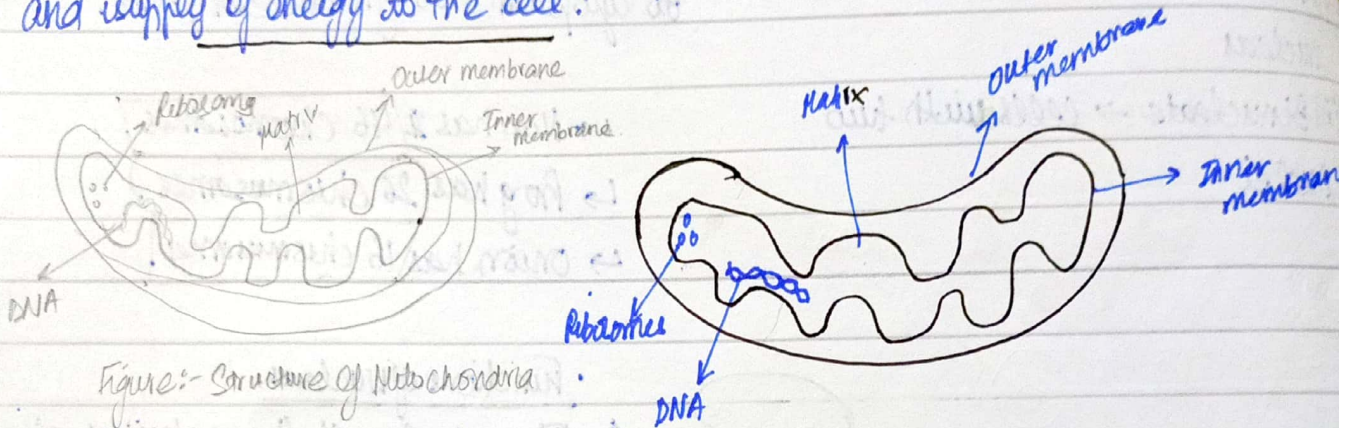 and supply of energy to the cell.
Outer membrane
Ribosome
Matrix
Inner
membrane
DNA
Figure:- Structure Of Mitochondria
Matrix
Outer
membrane
Inner
membran
Ribosomes
DNA